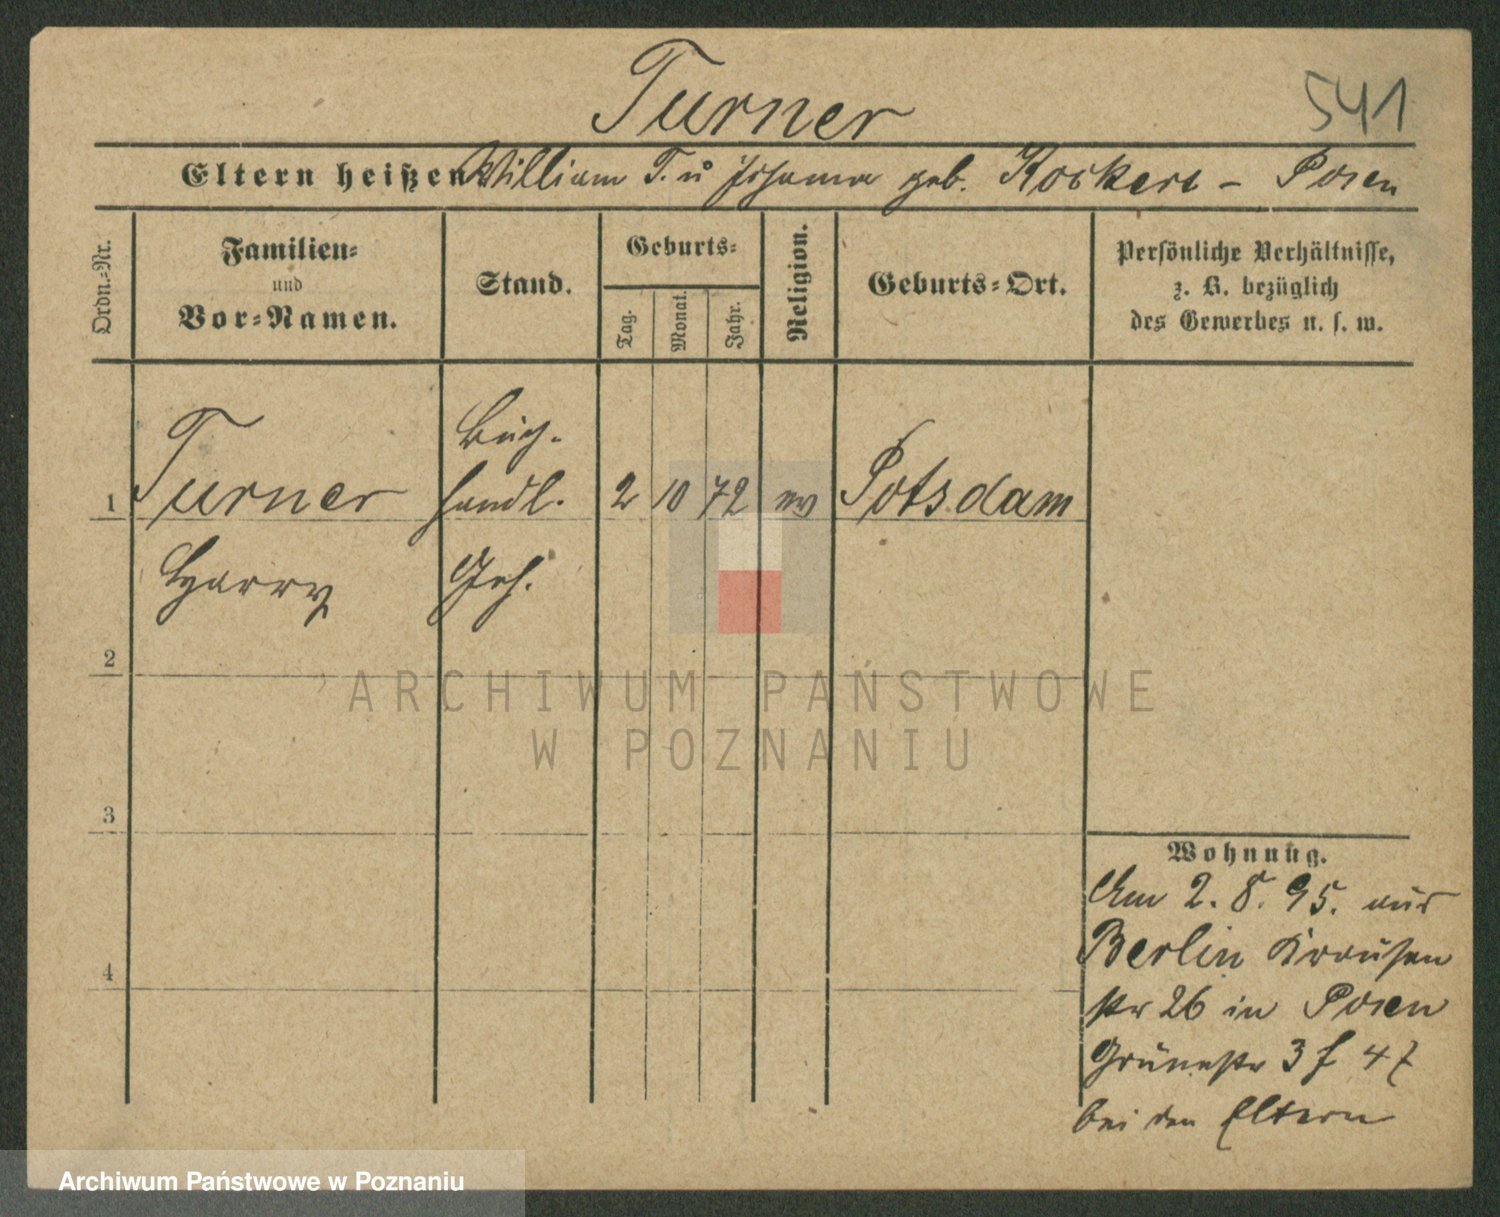 Turner
541
Eltern heißen William T. u Johanna geb. – Posen
Ordn.=Nr.
Familien=
und
Vor=Namen.
Stand.
Geburts=
Tag.
Monat.
Jahr.
Religion.
Geburts=Ort.
Persönliche Verhältnisse,
z. B. bezüglich
des Gewerbes u. s. w.
1 Turner
Harry
Buch-
handl.
Geh.
2 10 72 ev Potsdam
2
3
4
Wohnung.
Am 2. 8. 95. aus
Berlin Krausen
str 26 in Posen
Grünestr 3 f 47
bei den Eltern
ARCHIWUM PAŃSTWOWE
W POZNANIU
Archiwum Państwowe w Poznaniu